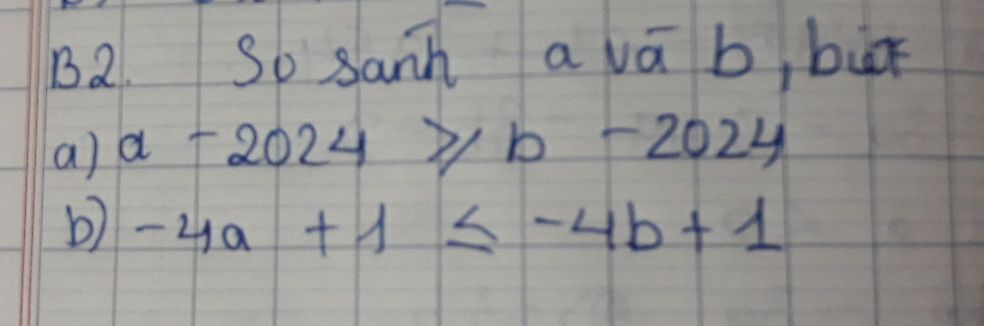 B2. So sánh a và b, biết
a) a - 2024 ≥ b - 2024
b) -4a + 1 ≤ -4b + 1